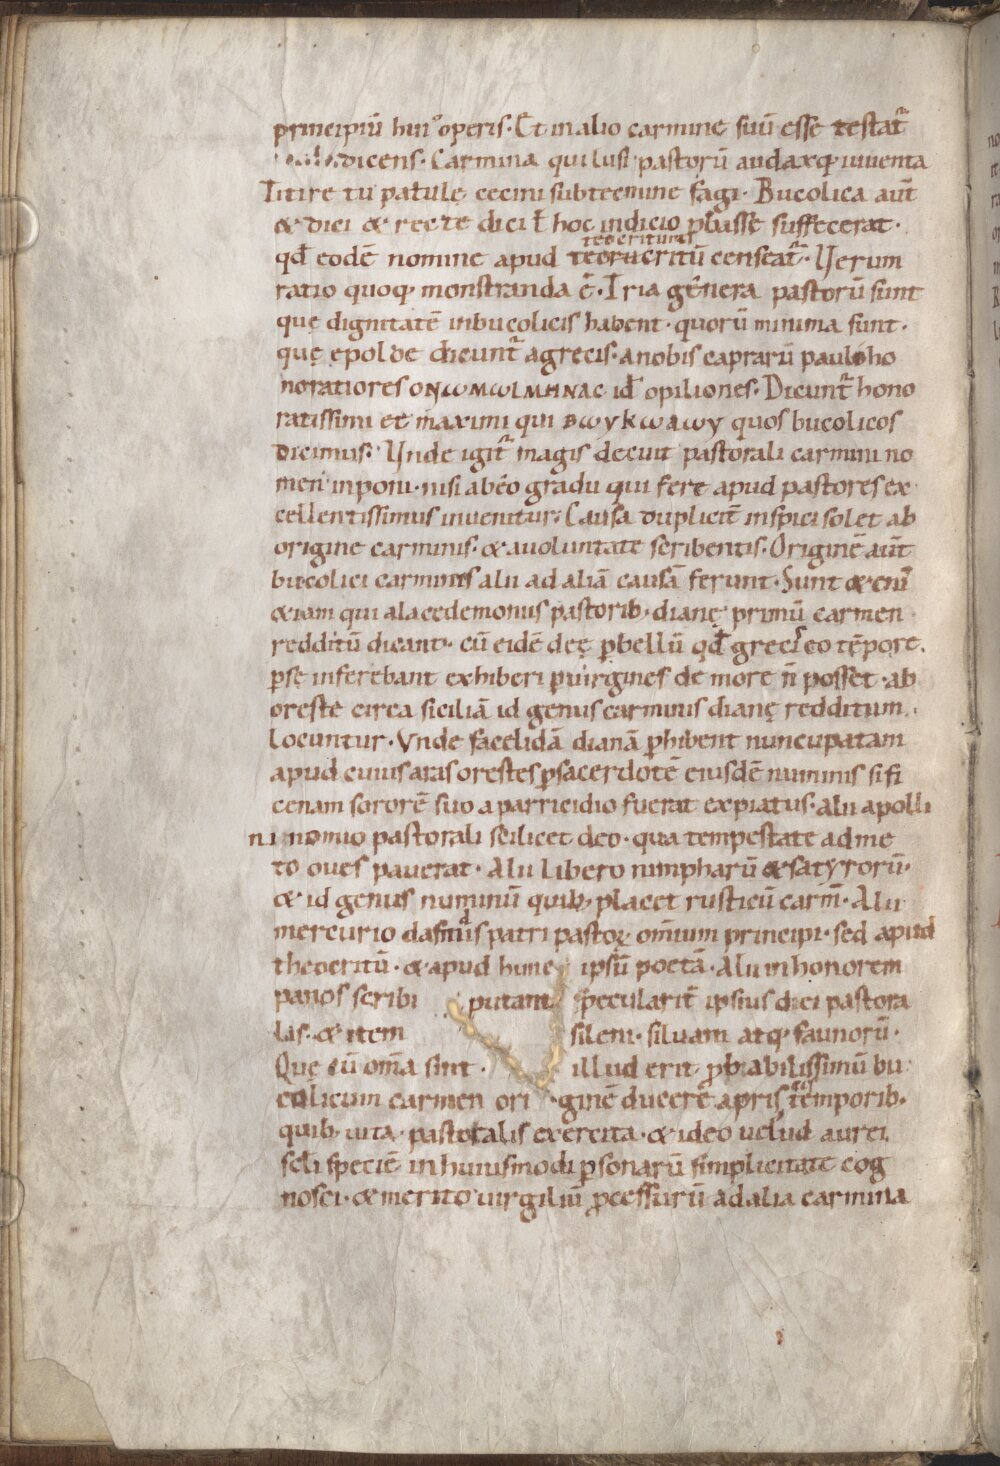 principiū hui᾽ operis· Et in alio carmine suū esse testat᷑
dicens· Carmina qui lusi pastorū audaxq; iuuenta
Titire tu patulę cecini subtegmine fagi· Bucolica aut̄
& dici & recte dici t̄ hoc indicio ꝓbasse suffecerat·
teocritum
qd̄ eodē nomine apud teorucritū censeat᷑· Uerum
ratio quoq; monstranda ē· Tria genera pastorū sunt
quę dignitatē in bucolicis habent· quorū minima sunt·
quę epoloe dicunt᷑ agrecis· anobis caprarū paulo ho
noratiores ONωMωLMHNAC id̄ opiliones· Dicunt᷑ hono
ratissimi et maximi qui BωyKωaωy quos bucolicos
dicimus· Unde igit᷑ magis decuit pastorali carmini no
men inponi· nisi ab eo gradu qui fere apud pastores ex
cellentissimus inuenitur; Causa duplicit̄ inspici solet ab
origine carminis· & auoluntate scribentis· Originē aut̄
bucolici carminis alii ad aliā causā ferunt· Sunt & eni᷑
&iam qui alacedemoniis pastorib; dianę primū carmen
redditū dicant· cū eidē deę ꝑ bellū qd̄ greci eo tēpore
ꝑsę inferebant exhiberi ꝑ uirgines de more n̄ posset· ab
oreste circa siciliā id genus carminis dianę redditum
locuntur· Vnde facelidā dianā ꝑhibent nuncupatam
apud cuius aras orestes ꝑ sacerdotē eiusdē numinis sifi
cenam sororē suo a parricidio fuerat expiatus· alii apolli
ni nomio pastorali scilicet deo· qua tempestate adme
to oues pauerat· Alii libero nimpharū & satyrorū·
& id genus numinū quib; placet rusticū carm̄· Alii
mercurio dafnidis patri pastoꝝ omīum principi· sed apud
theocritū· & apud hunc ipsū poetā· Alii in honorem
panos scribi putant specularit̄ ipsius dei pastora
lis· & item sileni· siluani atq; faunorū·
Que cū om̄a sint· illud erit ꝓbabilissimū bu
colicum carmen ori ginē ducere apris tēmporib;
quib; uita pastoralis exercita· & ideo uelud aurei
scl̄i speciē in huiusmodi ꝑsonarū simplicitate cog
nosci· & merito uirgiliū ꝓcessurū ad alia carmina